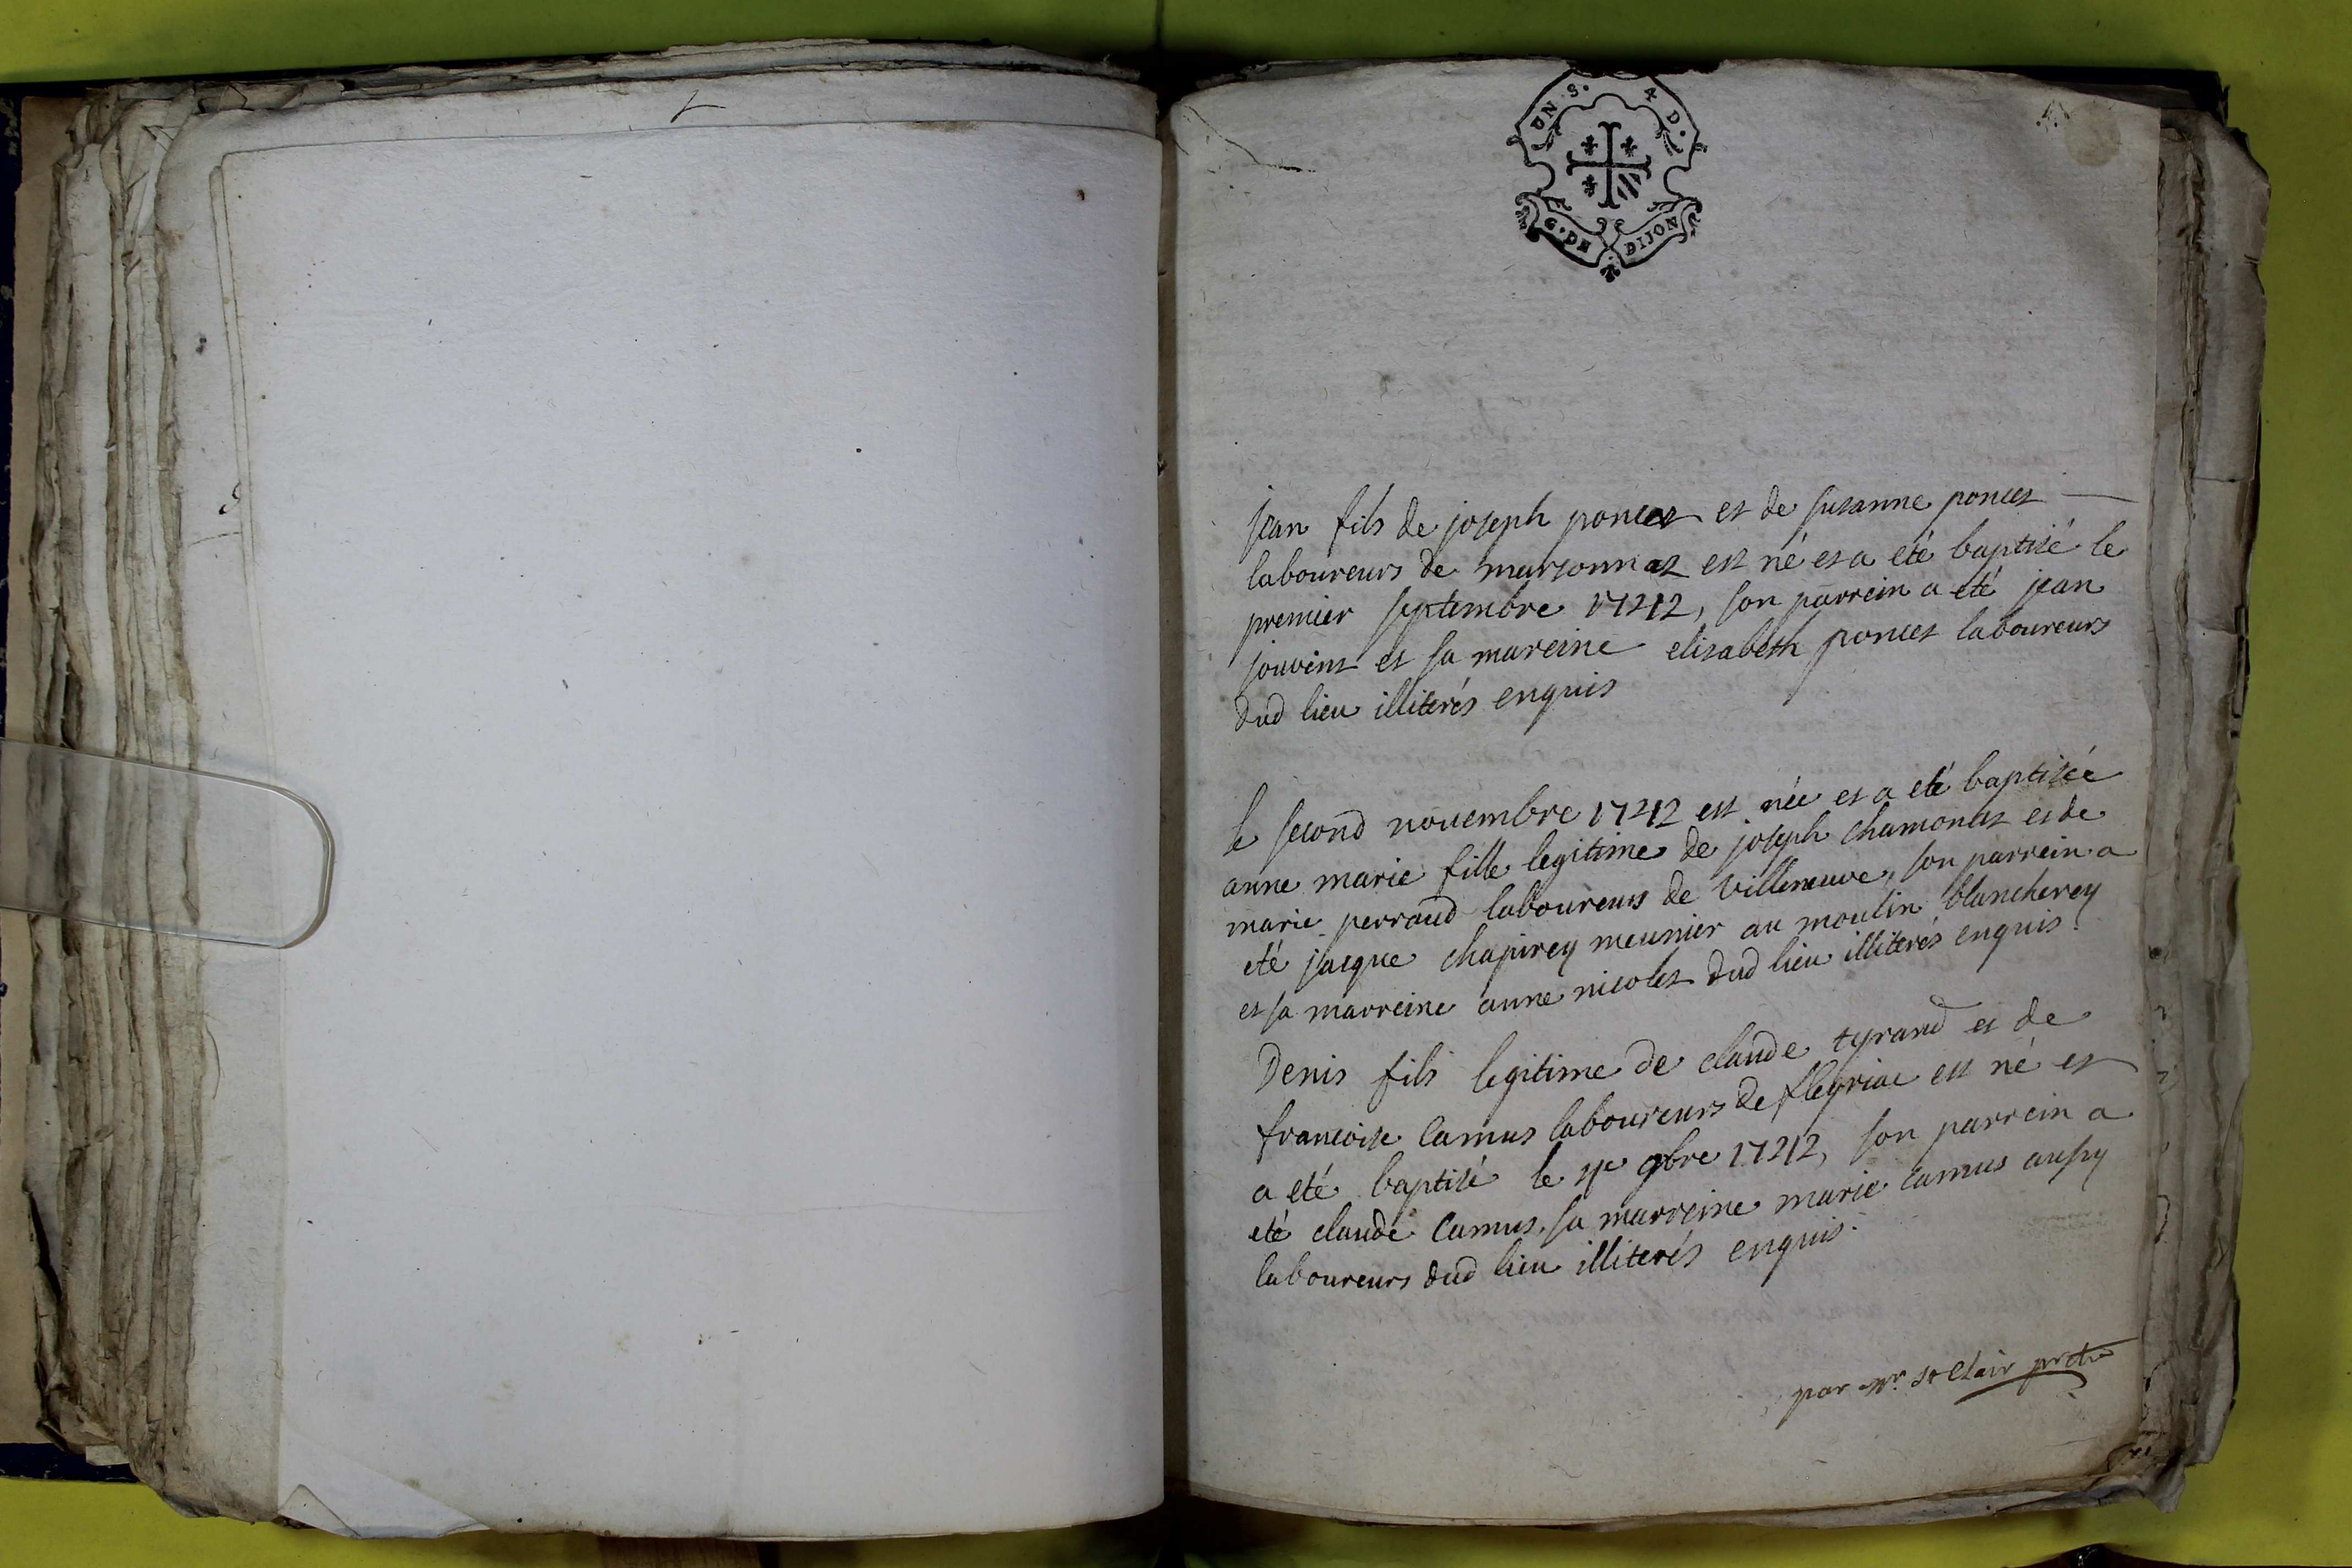 UN S. 4 D.
G. DE DIJON
jean fils de joseph poncet et de susanne poncet
laboureurs de marsonnat est né et a eté baptisé le
premier septembre 1742, son parrein a eté jean
jouvent et sa mareine elisabeth poncet laboureurs
dud lieu illiterés enquis
le second novembre 1742 est née et a eté baptisée
anne marie fille legitime de joseph chamontet et de
marie perraud laboureurs de villeneuve, son parrein a
eté jacque chapirey meunier au moulin blancherey
et sa marreine anne nicolet dud lieu illiterés enquis.
Denis fils legitime de claude tyrand et de
francoise Camus laboureurs de flegriat est né et
a eté baptisé le 9bre 1742, son parrein a
eté claude Camus, sa marreine marie Camus aussy
laboureurs dud lieu illiterés enquis.
par mr. st Clair pretre